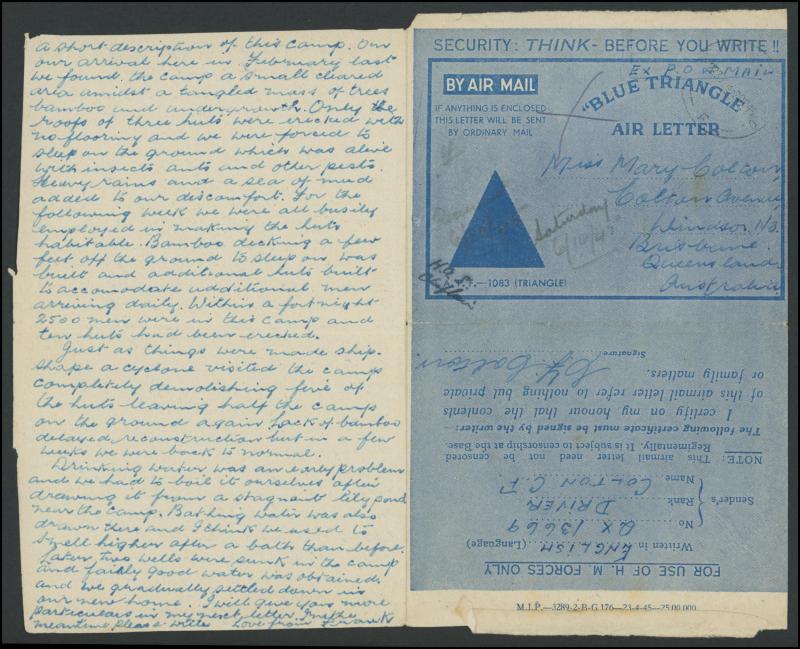 a short description of this camp. On
our arrival here in February last
we found the camp a small cleared
area amidst a tangled mass of trees
bamboo and undergrowth. Only the
roofs of three huts were erected with
no flooring and we were forced to
sleep on the ground which was alive
with insects ants and other pests.
Heavy rains and a sea of mud
added to our discomfort. For the
following week we were all busily
employed in making the huts
habitable. Bamboo decking a few
feet off the ground to sleep on was
built and additional huts built
to accomodate additional men
arriving daily. Within a fortnight
2500 men were in this camp and
ten huts had been erected.
Just as things were made ship-
shape a cyclone visited the camp
completely demolishing five of
the huts leaving half the camp
on the ground again. Lack of bamboo
delayed reconstruction but in a few
weeks we were back to normal.
Drinking water was an early problem
and we had to boil it ourselves after
drawing it from a stagnant lily pond
near the camp. Bathing water was also
drawn there and I think we used to
smell higher after a bath than before.
Later two wells were sunk in the camp
and fairly good water was obtained
and we gradually settled down in
our new home. I will give you more
particulars in my next letter. In the
meantime please write Love from Frank
SECURITY: THINK - BEFORE YOU WRITE !!
EX P.O.W. MAIL
BY AIR MAIL
IF ANYTHING IS ENCLOSED
THIS LETTER WILL BE SENT
BY ORDINARY MAIL
"BLUE TRIANGLE"
AIR LETTER
Miss Mary Colton
Colton Avenue
Windsor N3.
Brisbane
Queensland
Australia
Saturday
6/10/45
1083 (TRIANGLE)
FOR USE OF H. M. FORCES ONLY
Written in ENGLISH (Language)
Sender's
No. QX 13669
Rank DRIVER
Name COLTON C.F.
NOTE: This airmail letter need not be censored
Regimentally. It is subject to censorship at the Base.
The following certificate must be signed by the writer:
I certify on my honour that the contents
of this airmail letter refer to nothing but private
or family matters.
Signature
CF Colton
M.I.P.—3289-2-B-G 176—23-4-45—25,00,000